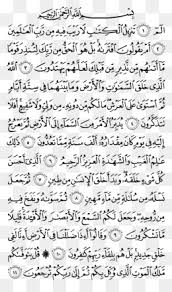 بِسْمِ ٱللَّهِ ٱلرَّحْمَٰنِ ٱلرَّحِيمِ
الٓمٓ ١ تَنزِيلُ ٱلْكِتَٰبِ لَا رَيْبَ فِيهِ مِن رَّبِّ ٱلْعَٰلَمِينَ
٢ أَمْ يَقُولُونَ ٱفْتَرَىٰهُ بَلْ هُوَ ٱلْحَقُّ مِن رَّبِّكَ لِتُنذِرَ قَوْمًا
مَّآ أَتَىٰهُم مِّن نَّذِيرٍ مِّن قَبْلِكَ لَعَلَّهُمْ يَهْتَدُونَ ٣ ٱللَّهُ
ٱلَّذِى خَلَقَ ٱلسَّمَٰوَٰتِ وَٱلْأَرْضَ وَمَا بَيْنَهُمَا فِى سِتَّةِ أَيَّامٍ
ثُمَّ ٱسْتَوَىٰ عَلَى ٱلْعَرْشِ مَا لَكُم مِّن دُونِهِۦ مِن وَلِىٍّ وَلَا شَفِيعٍ أَفَلَا
تَتَذَكَّرُونَ ٤ يُدَبِّرُ ٱلْأَمْرَ مِنَ ٱلسَّمَآءِ إِلَى ٱلْأَرْضِ ثُمَّ يَعْرُجُ
إِلَيْهِ فِى يَوْمٍ كَانَ مِقْدَارُهُۥٓ أَلْفَ سَنَةٍ مِّمَّا تَعُدُّونَ ٥ ذَٰلِكَ
عَٰلِمُ ٱلْغَيْبِ وَٱلشَّهَٰدَةِ ٱلْعَزِيزُ ٱلرَّحِيمُ ٦ ٱلَّذِىٓ أَحْسَنَ
كُلَّ شَىْءٍ خَلَقَهُۥ وَبَدَأَ خَلْقَ ٱلْإِنسَٰنِ مِن طِينٍ ٧ ثُمَّ جَعَلَ
نَسْلَهُۥ مِن سُلَٰلَةٍ مِّن مَّآءٍ مَّهِينٍ ٨ ثُمَّ سَوَّىٰهُ وَنَفَخَ فِيهِ
مِن رُّوحِهِۦ وَجَعَلَ لَكُمُ ٱلسَّمْعَ وَٱلْأَبْصَٰرَ وَٱلْأَفْـِٔدَةَ قَلِيلًا
مَّا تَشْكُرُونَ ٩ وَقَالُوٓا۟ أَءِذَا ضَلَلْنَا فِى ٱلْأَرْضِ أَءِنَّا لَفِى
خَلْقٍ جَدِيدٍۭ بَلْ هُم بِلِقَآءِ رَبِّهِمْ كَٰفِرُونَ ١٠ قُلْ يَتَوَفَّىٰكُم
مَّلَكُ ٱلْمَوْتِ ٱلَّذِى وُكِّلَ بِكُمْ ثُمَّ إِلَىٰ رَبِّكُمْ تُرْجَعُونَ ١١